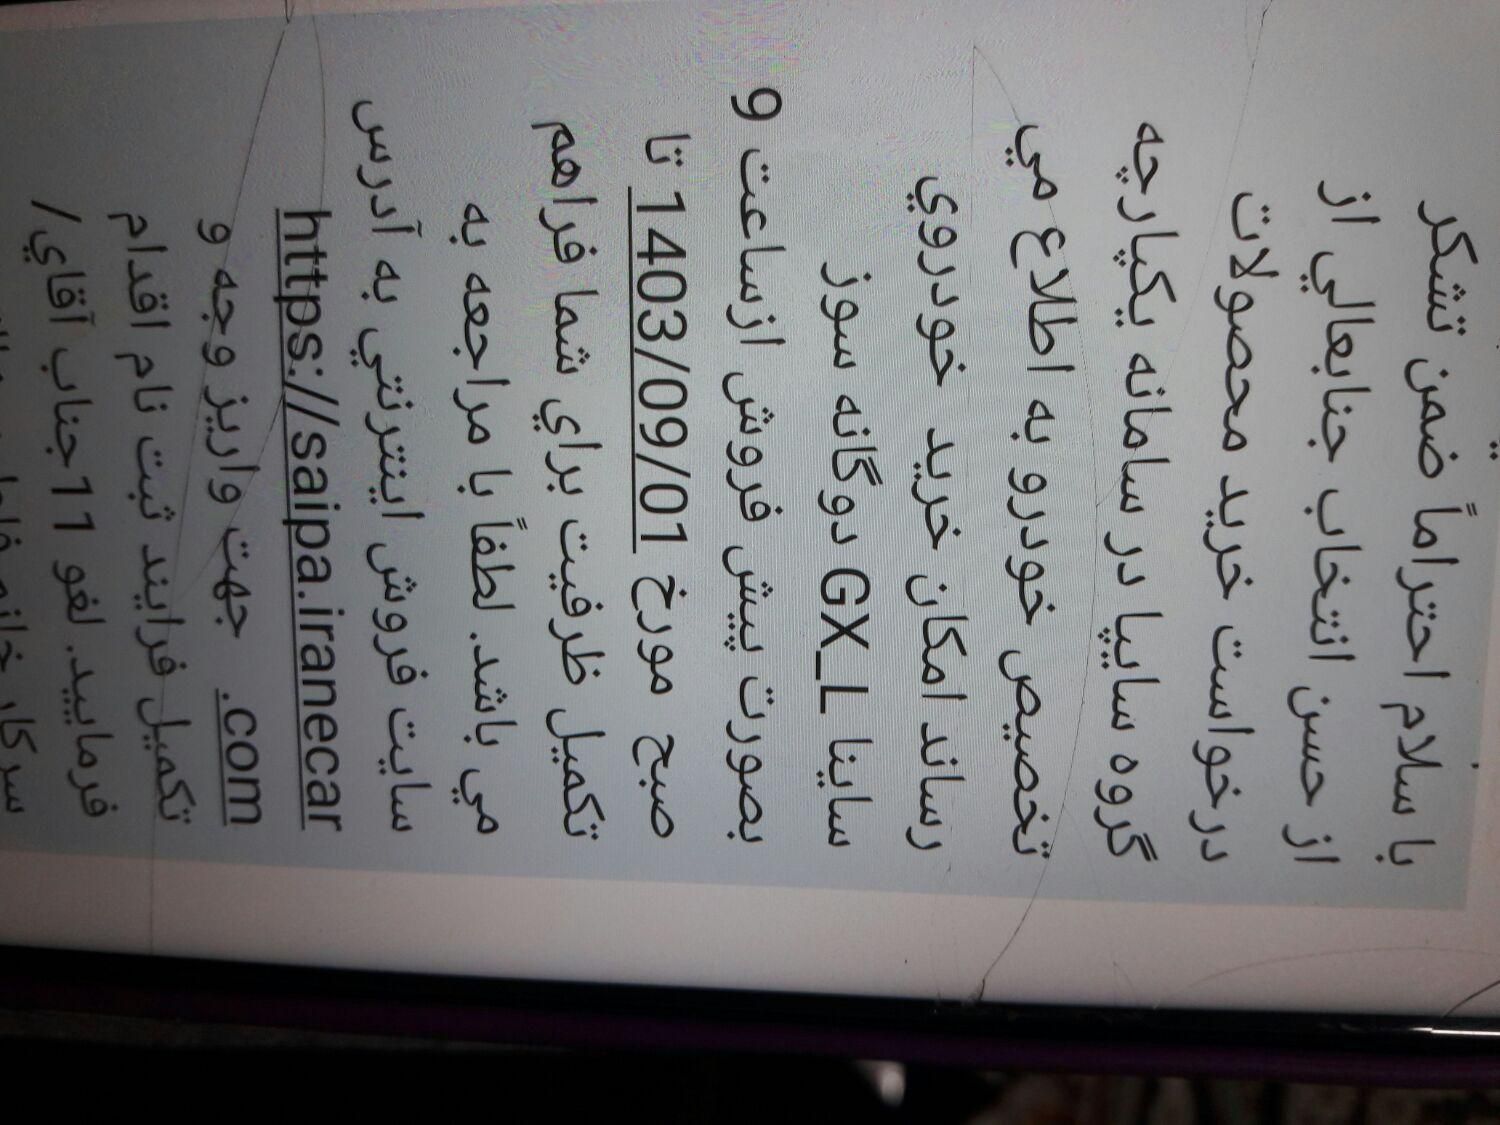 با سلام احتراماً ضمن تشكر
از حسن انتخاب جنابعالي از
درخواست خريد محصولات
گروه سايپا در سامانه يكپارچه
تخصيص خودرو به اطلاع مي
رساند امكان خريد خودروي
ساينا GX_L دوگانه سوز
بصورت پيش فروش ازساعت 9
صبح مورخ 1403/09/01 تا
تكميل ظرفيت براي شما فراهم
مي باشد. لطفاً با مراجعه به
سايت فروش اينترنتي به آدرس
https://saipa.iranecar
.com جهت واريز وجه و
تكميل فرايند ثبت نام اقدام
فرماييد. لغو 11جناب آقاي/
سركار خانم